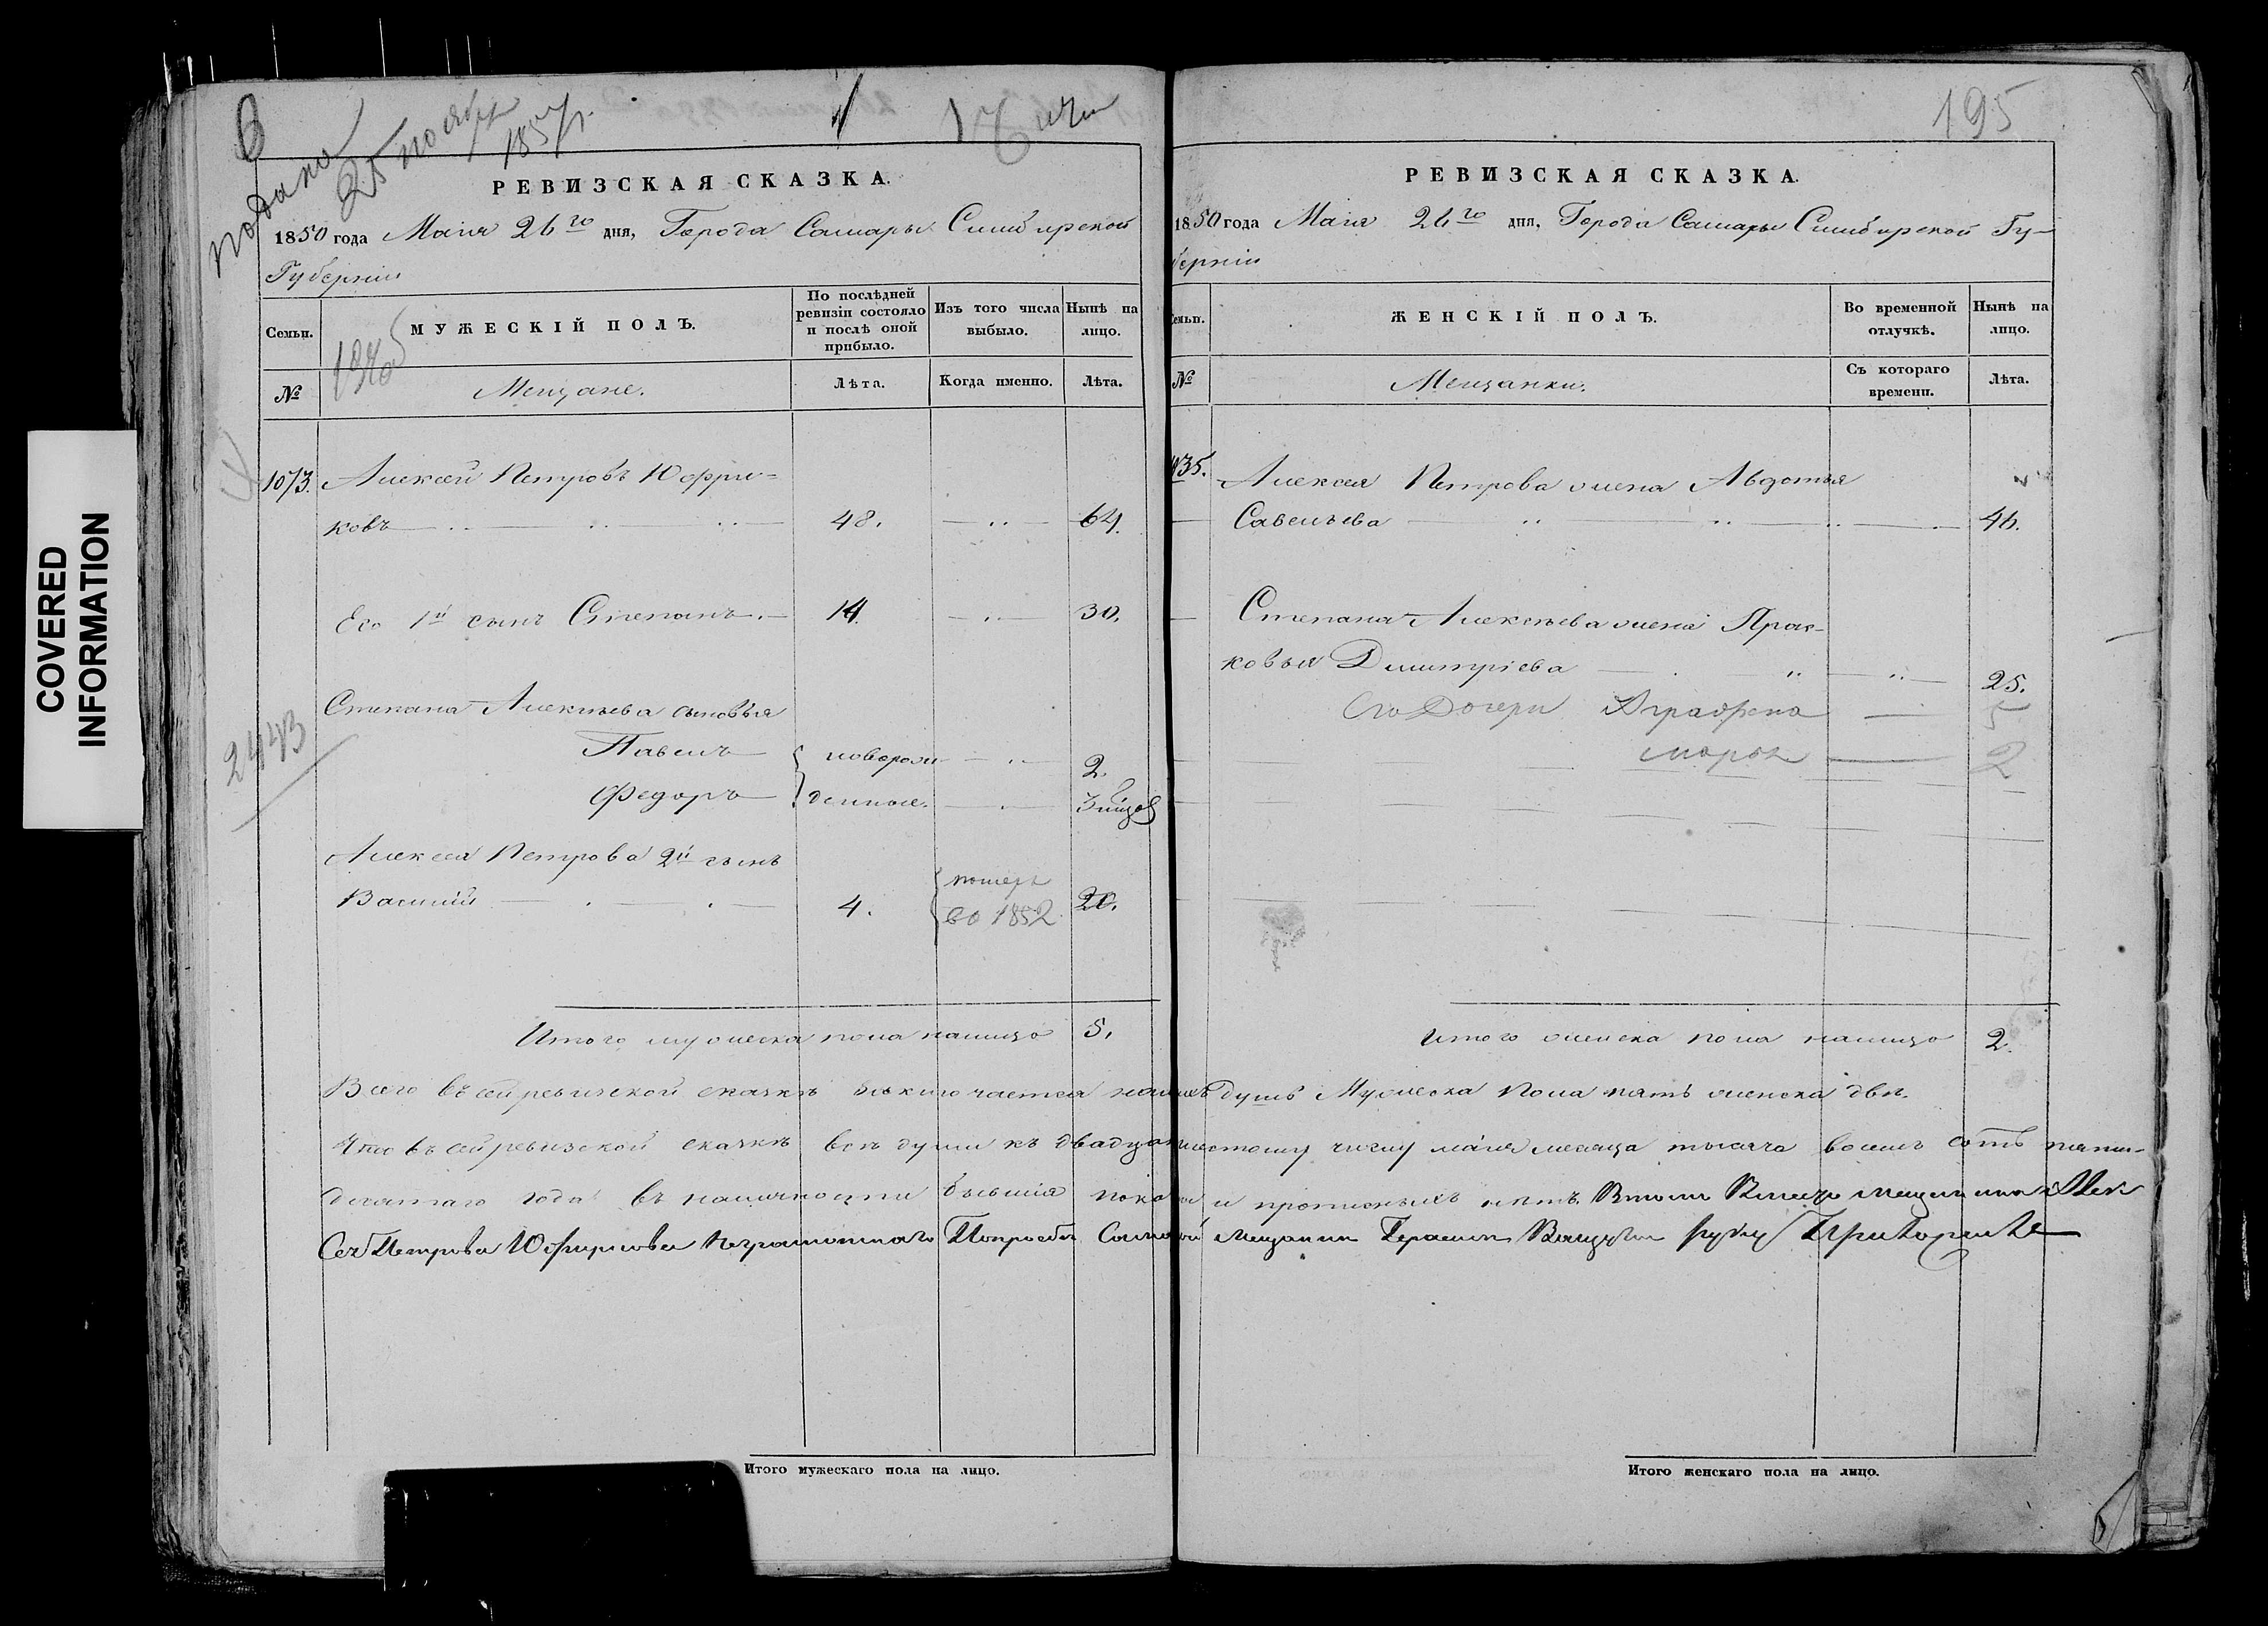 COVERED
INFORMATION
6
подана
25 ноября
1857 г.
РЕВИЗСКАЯ СКАЗКА.
1850 года Маія 26го дня, Города Самары Симбирской
Губерніи
Семьи.
МУЖЕСКІЙ ПОЛЪ.
По послѣдней
ревизіи состояло
и послѣ оной
прибыло.
Изъ того числа
выбыло.
Нынѣ на
лицо.
№
Мещане.
Лѣта.
Когда именно.
Лѣта.
1073. Алексей Петровъ Юфри-
ковъ 48. 64.
Его 1й сынъ Степанъ 14. 30.
Степана Алексѣева сыновья
Павелъ новорож- 2.
Федоръ денные. 3 мѣсяц.
2443
Алексея Петрова 2й сынъ
Василій 4. помер
во 1852 20.
Итого мужеска пола налицо 5.
195
РЕВИЗСКАЯ СКАЗКА.
1850 года Маія 26го дня, Города Самары Симбирской Гу-
берніи
Семьи.
ЖЕНСКІЙ ПОЛЪ.
Во временной
отлучкѣ.
Нынѣ на
лицо.
№
Мещанки.
Съ котораго
времени.
Лѣта.
Алексея Петрова жена Авдотья
Савельева 46.
Степана Алексѣева жена Прас-
ковья Димитріева 25.
Его Дочери Аграфена 5
Марья 2
Итого женска пола налицо 2.
Всего въ сей ревизской сказкѣ заключается налицо душъ Мужеска пола пять женска двѣ.
Что въ сей ревизской сказкѣ всѣ души къ двадцать шестому числу маія месяца тысяча восемь сотъ пяти-
десятаго года въ наличности бывшія показаны и прописныхъ нѣтъ. Вместо мещанина Алек
Сея Петрова Юфирикова неграмотнаго Попрозбе Самарской Мещанин Герасим руку Приложил
Итого мужескаго пола на лицо.
Итого женскаго пола на лицо.